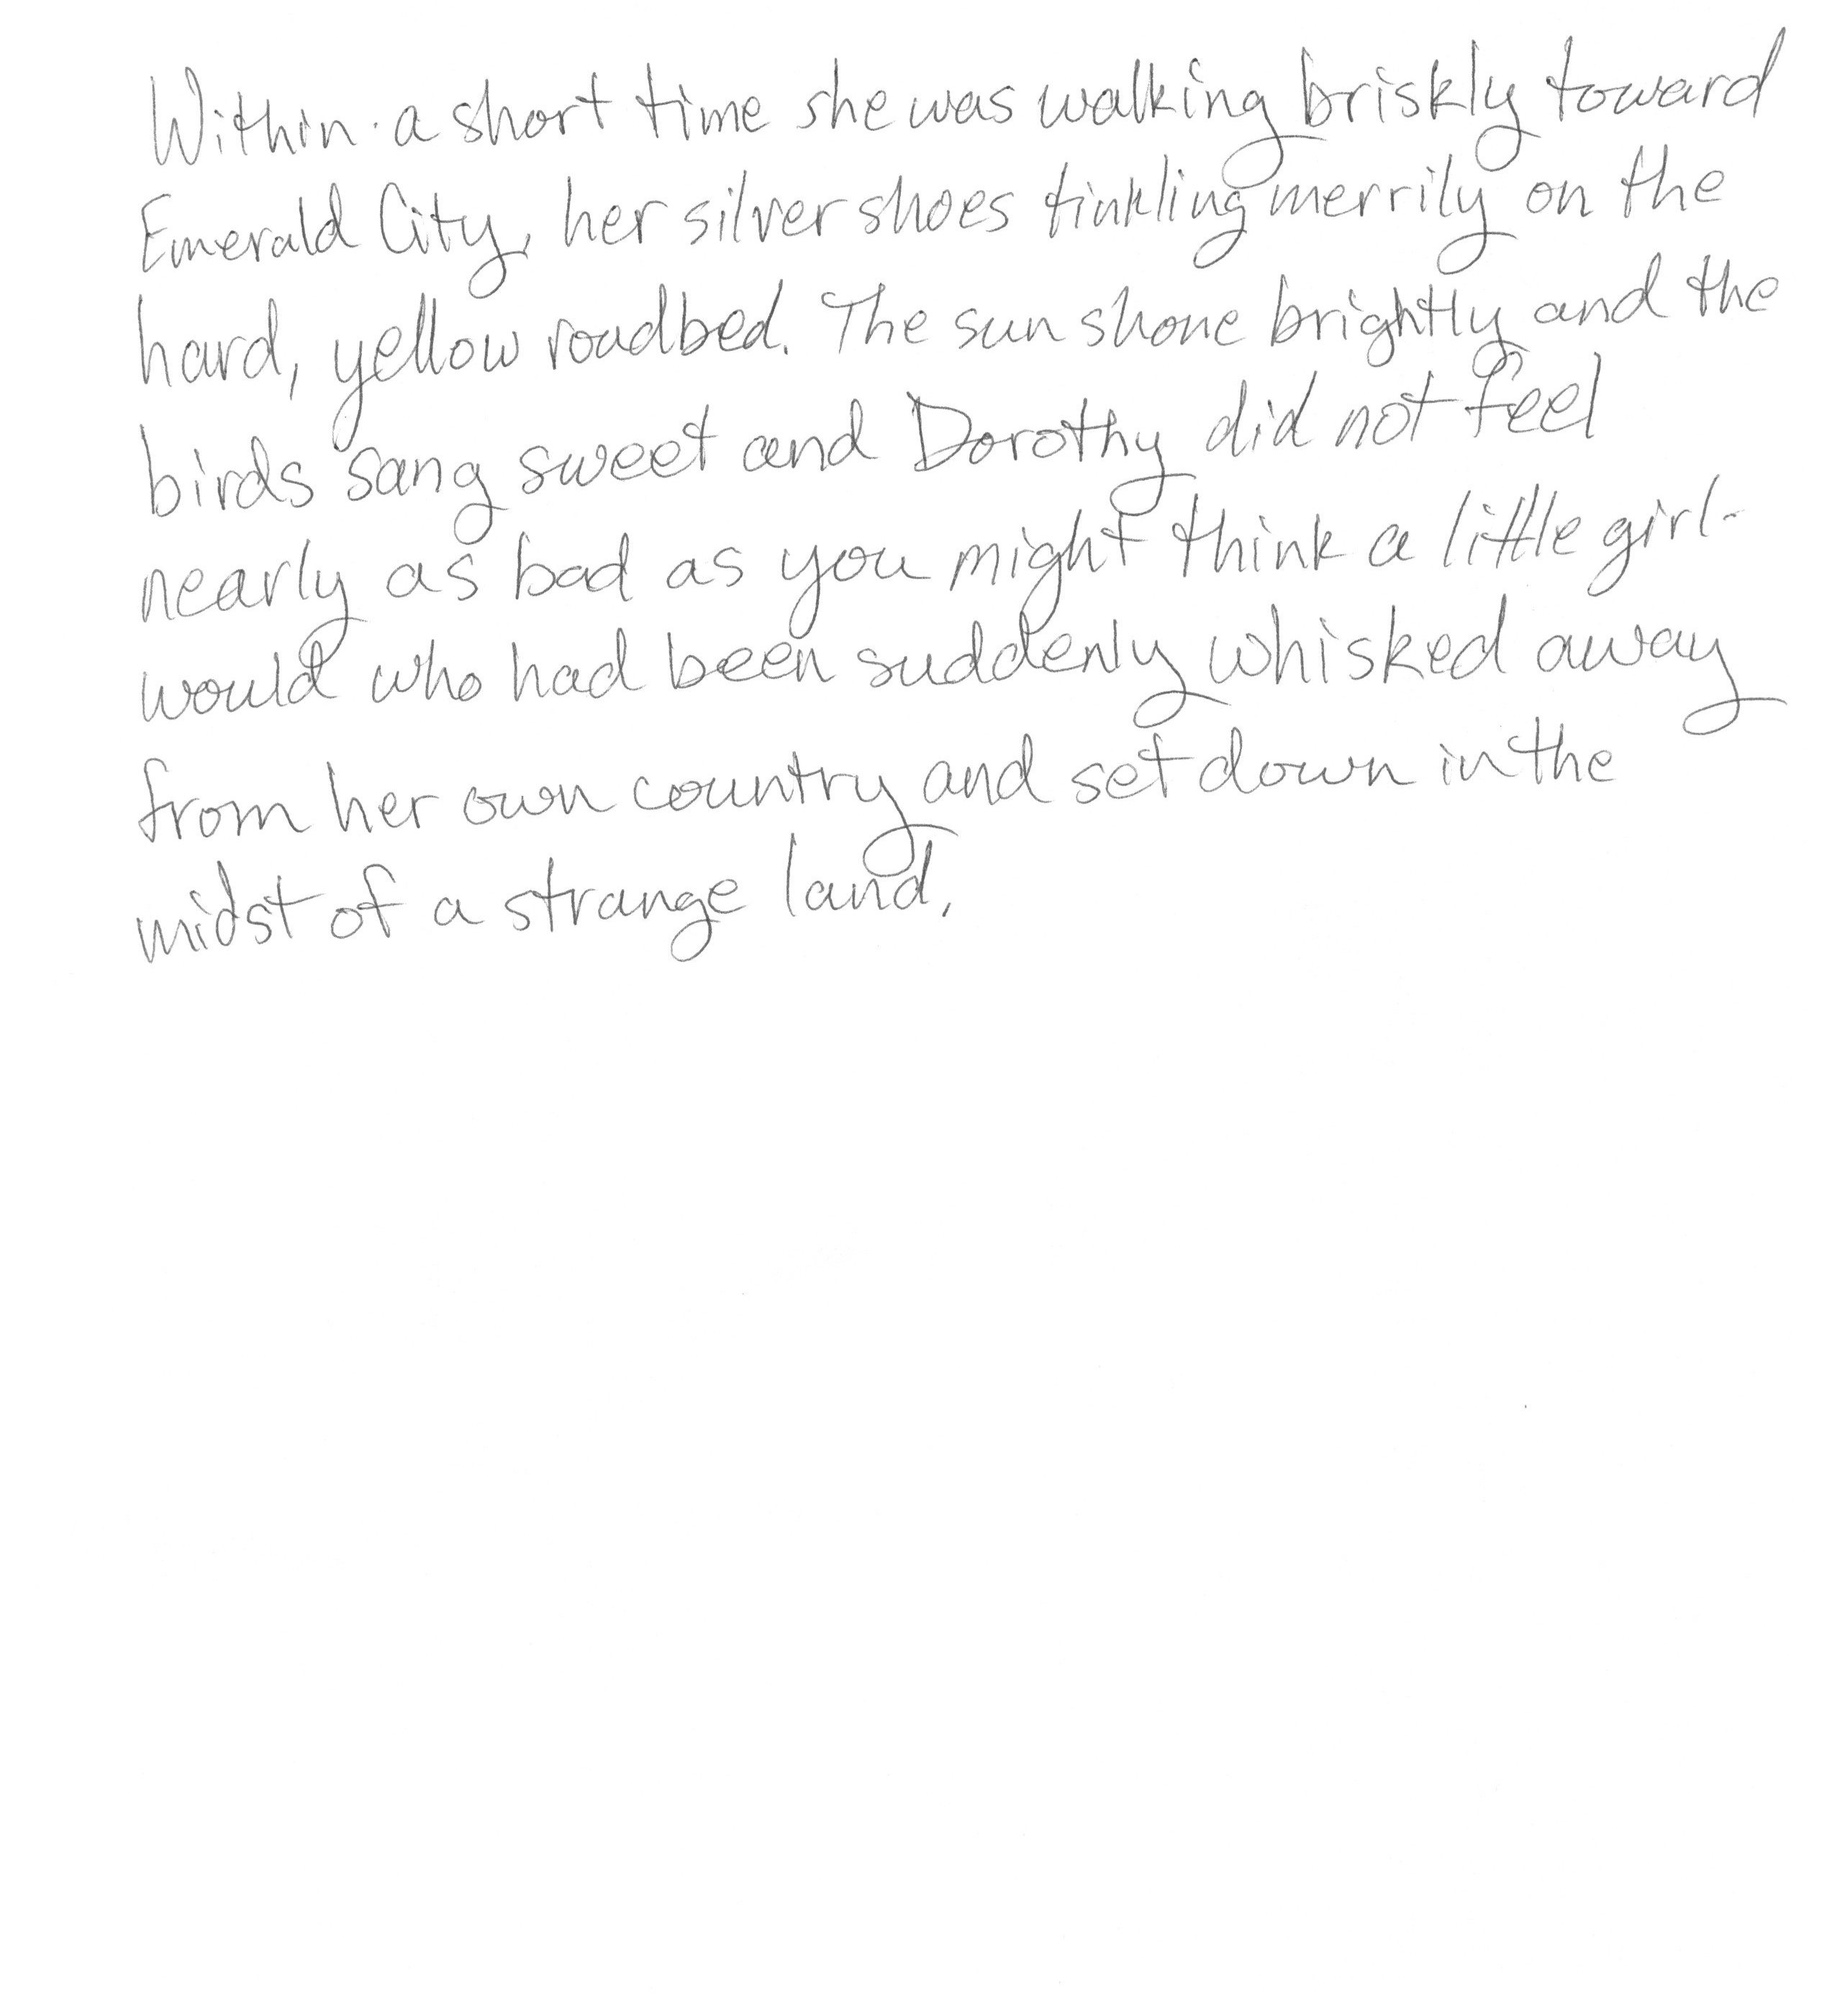 Within a short time she was walking briskly toward
Emerald City, her silver shoes tinkling merrily on the
hard, yellow roadbed. The sun shone brightly and the
birds sang sweet and Dorothy did not feel
nearly as bad as you might think a little girl
would who had been suddenly whisked away
from her own country and set down in the
midst of a strange land.